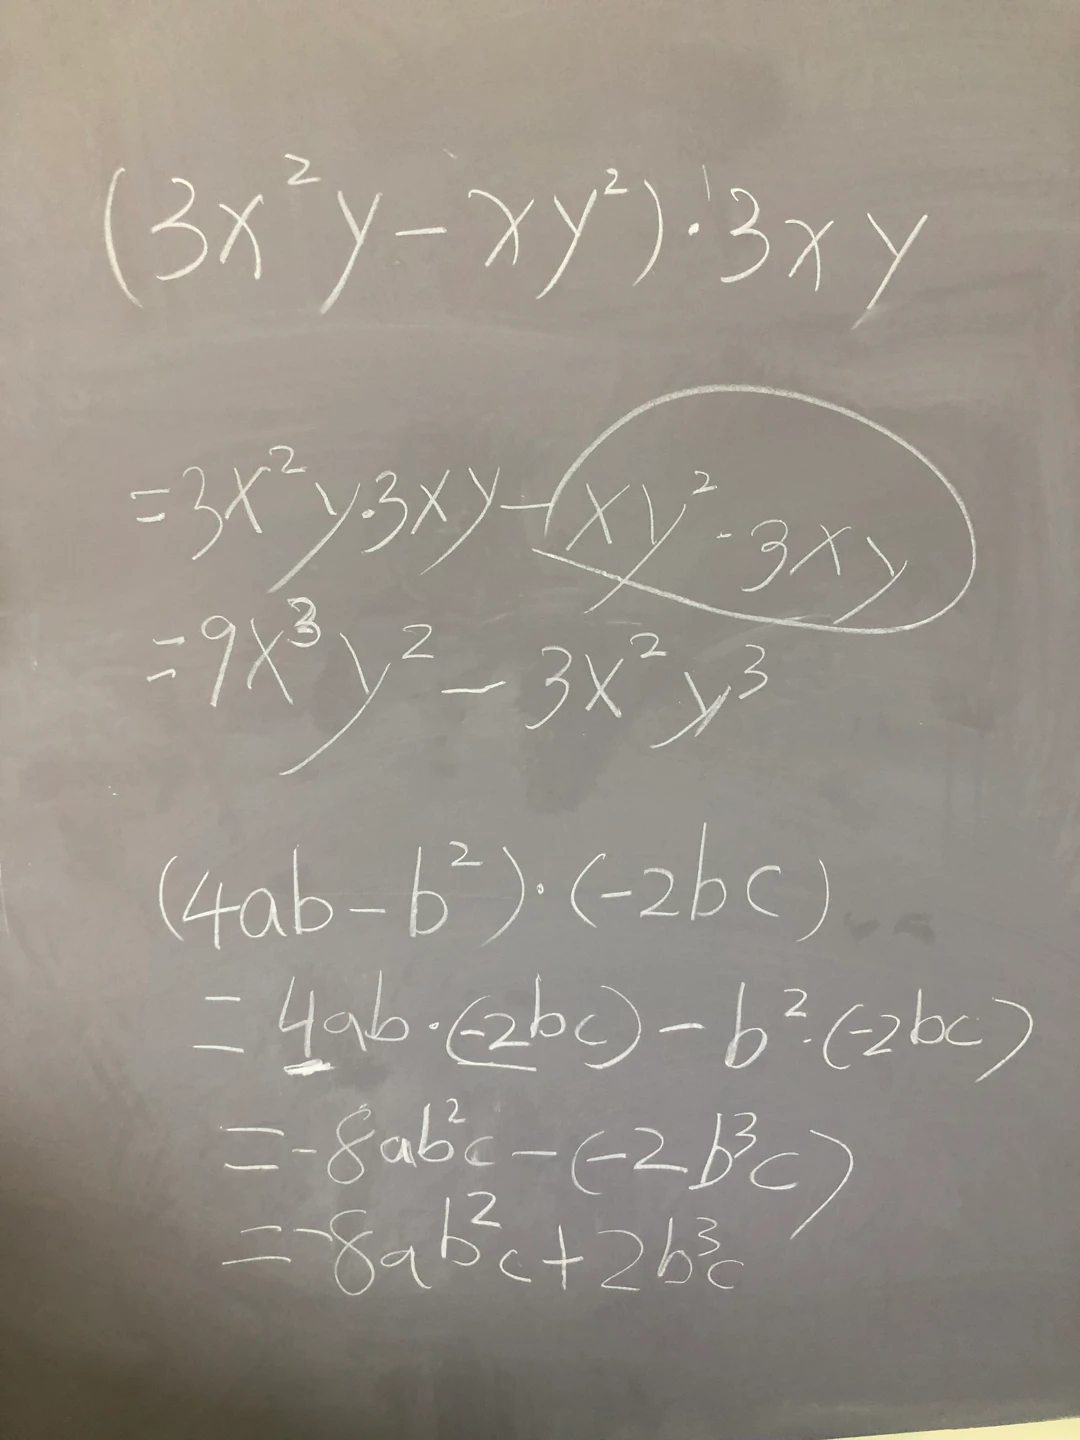 (3x²y-xy²)·3xy
=3x²y·3xy-xy²·3xy
=9x³y²-3x²y³
(4ab-b²)·(-2bc)
=4ab·(-2bc)-b²·(-2bc)
=-8ab²c-(-2b³c)
=-8ab²c+2b³c